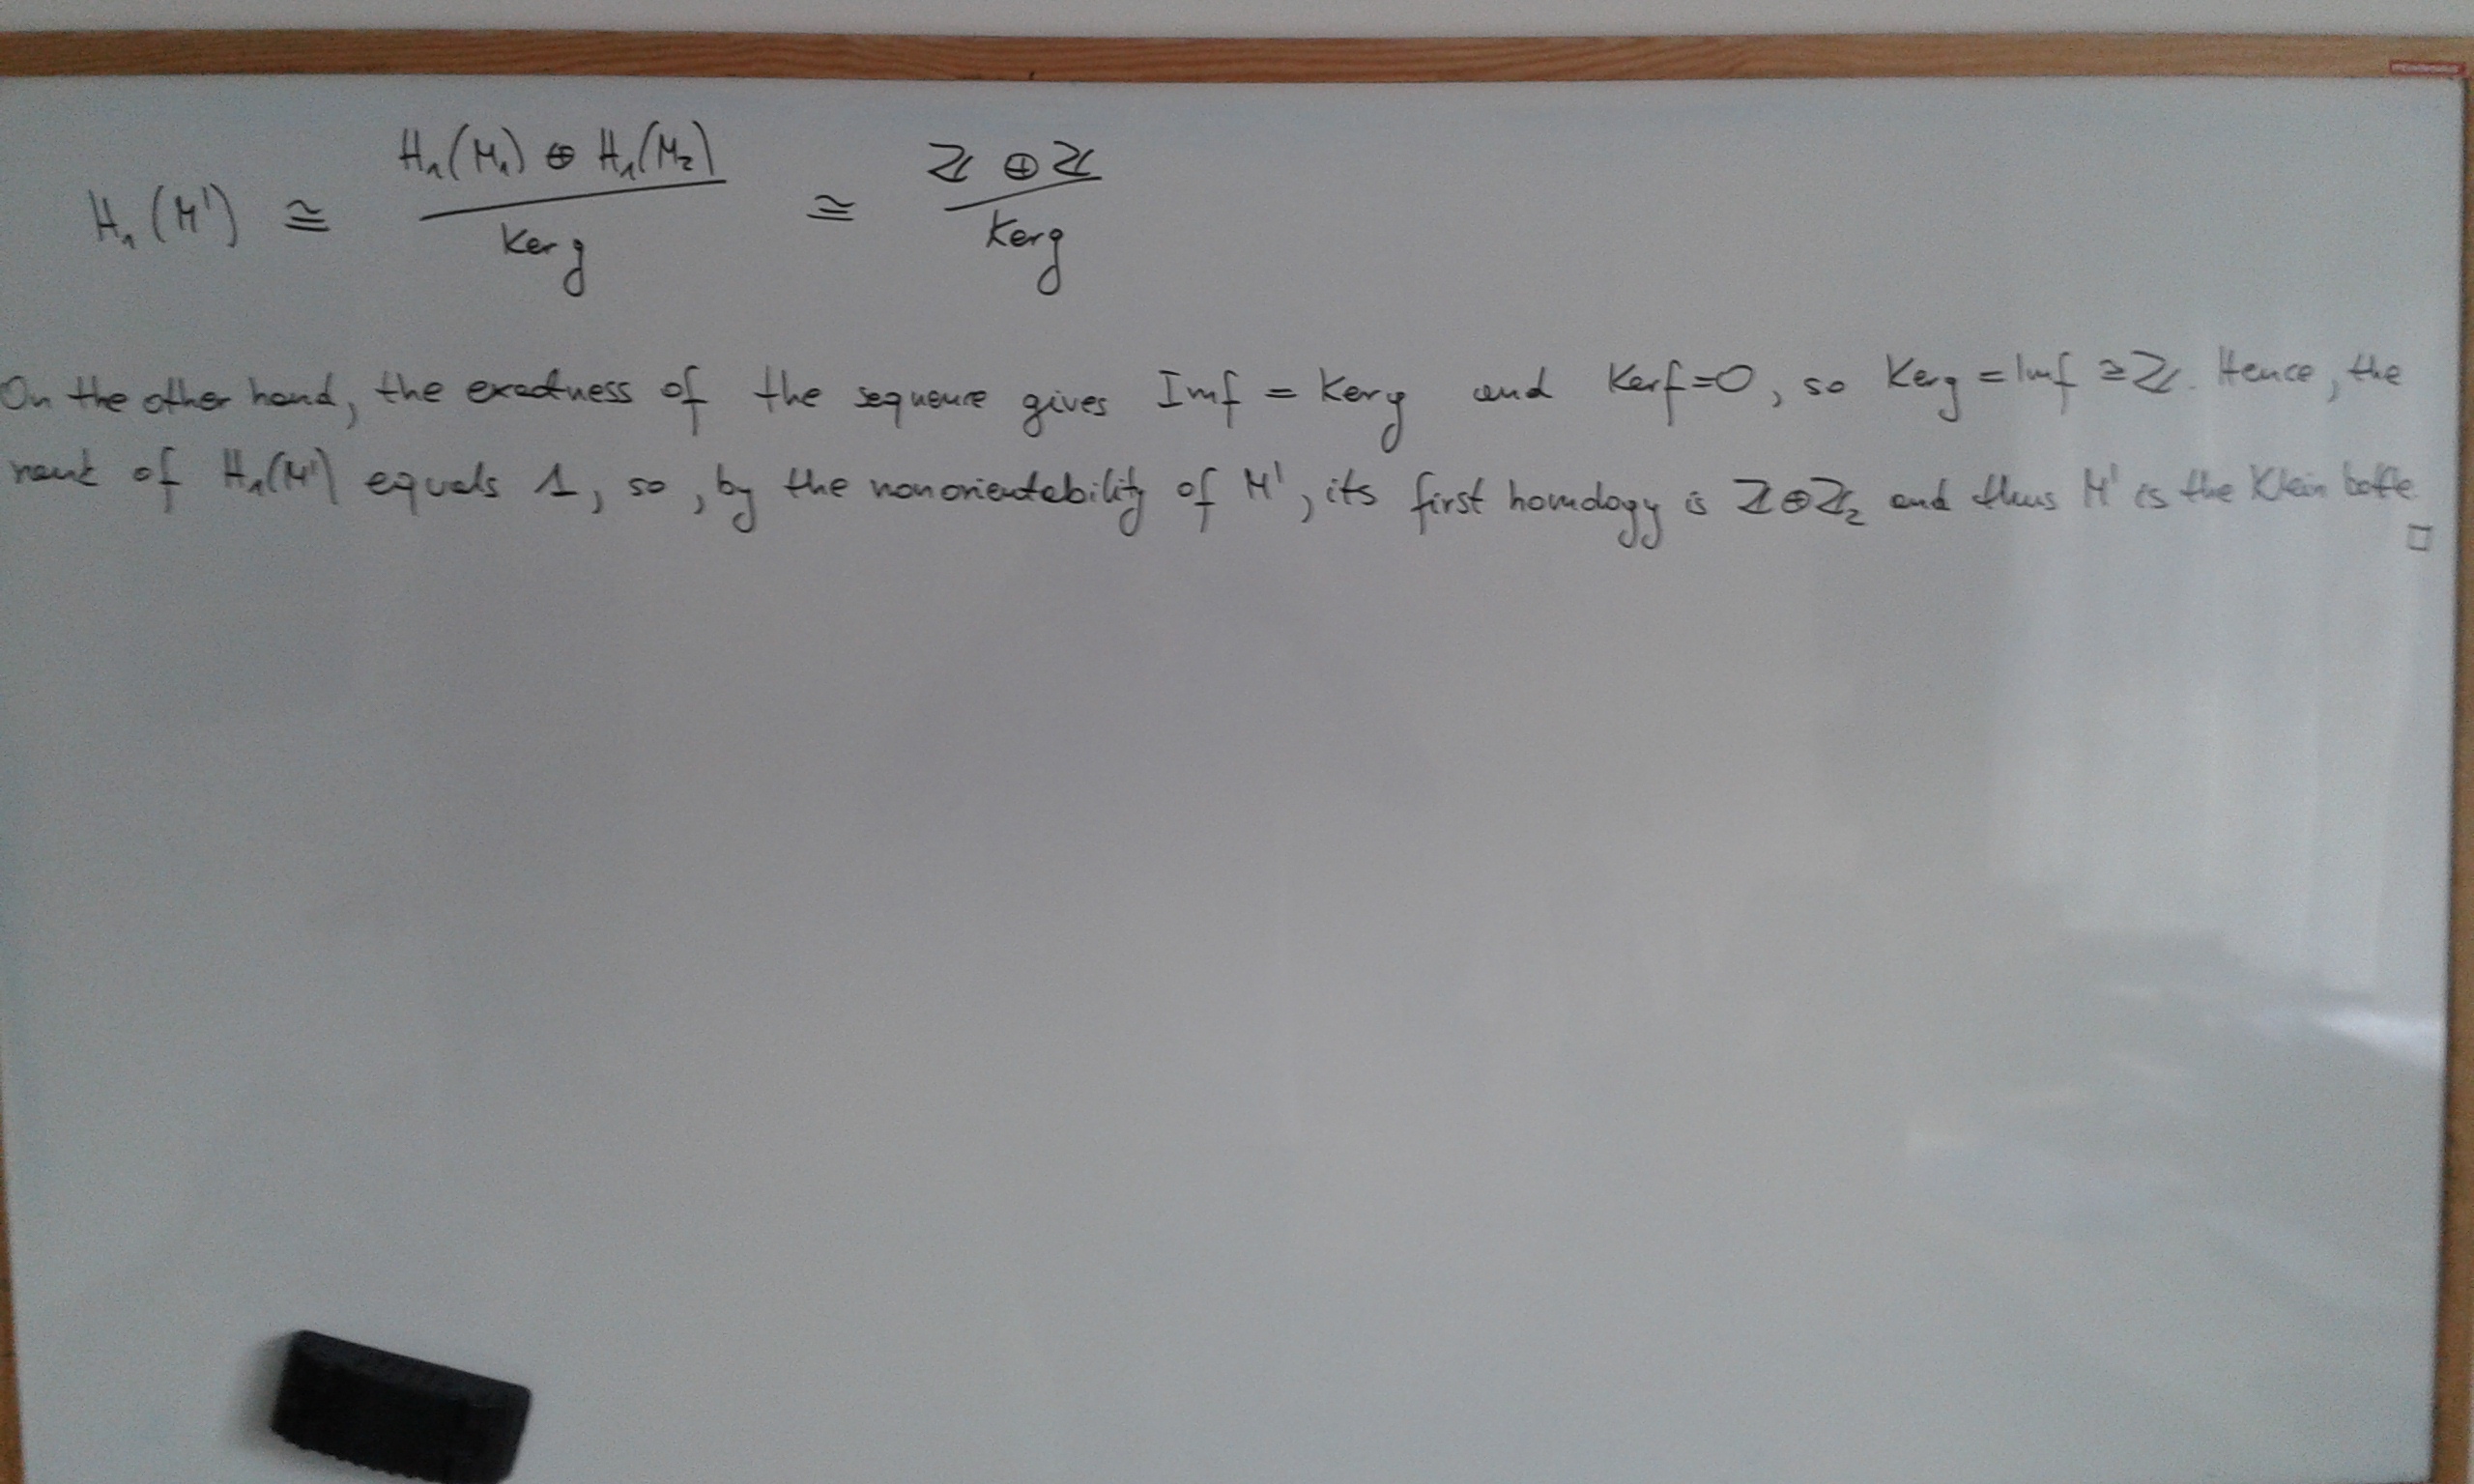 H₁(M') ≅ H₁(M₁) ⊕ H₁(M₂) / Ker g ≅ ℤ ⊕ ℤ / Ker g
On the other hand, the exactness of the sequence gives Im f = Ker g and Ker f = 0, so Ker g = Im f ≅ ℤ. Hence, the
rank of H₁(M') equals 1, so, by the nonorientability of M', its first homology is ℤ⊕ℤ₂ and thus M' is the Klein bottle
□